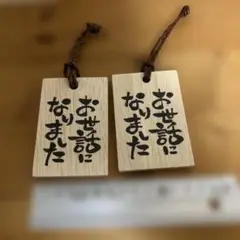 お世話に
なりました
お世話に
なりました